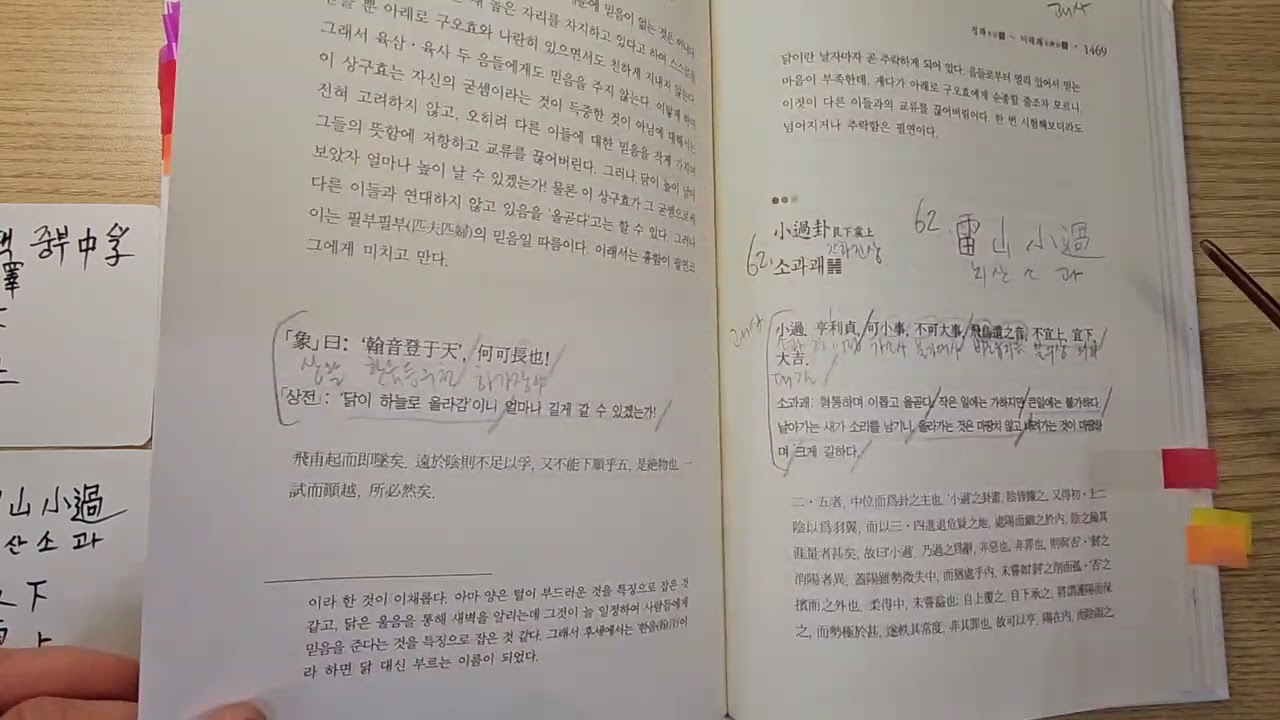 택 중부中孚
澤
山小過
산소과
下
높은 자리를 차지하고 있다고 하여 스스로를
뿐 아래로 구오효와 나란히 있으면서도 친하게 지내지 않는다.
그래서 육삼·육사 두 음들에게도 믿음을 주지 않는다. 이렇게 하여
이 상구효는 자신의 굳셈이라는 것이 득중한 것이 아님에 대해서는
전혀 고려하지 않고, 오히려 다른 이들에 대한 믿음을 작게 가지며
그들의 뜻함에 저항하고 교류를 끊어버린다. 그러나 닭이 높이 날아
보았자 얼마나 높이 날 수 있겠는가! 물론 이 상구효가 그 굳셈으로써
다른 이들과 연대하지 않고 있음을 '올곧다'고는 할 수 있다. 그러나
이는 필부필부(匹夫匹婦)의 믿음일 따름이다. 이래서는 흉함이 필연코
그에게 미치고 만다.
「象」曰: '翰音登于天', 何可長也!
상왈 한음등우천 하가장야
「상전」: '닭이 하늘로 올라감'이니 얼마나 길게 갈 수 있겠는가!
飛甫起而即墜矣. 遠於陰則不足以孚, 又不能下順乎五, 是絶物也. 一
試而顚越, 所必然矣.
이라 한 것이 이채롭다. 아마 양은 털이 부드러운 것을 특징으로 잡은 것
같고, 닭은 울음을 통해 새벽을 알리는데 그것이 늘 일정하여 사람들에게
믿음을 준다는 것을 특징으로 잡은 것 같다. 그래서 후세에서는 '한음(翰音)'이
라 하면 닭 대신 부르는 이름이 되었다.
괘사
1469
닭이란 날자마자 곧 추락하게 되어 있다. 음들로부터 멀리 있어서 믿는
마음이 부족한데, 게다가 아래로 구오효에게 순종할 줄조차 모르니,
이것이 다른 이들과의 교류를 끊어버림이다. 한 번 시험해보더라도
넘어지거나 추락함은 필연이다.
小過卦艮下震上
간하진상
62. 소과괘䷽
62. 雷山小過
뇌산소과
괘사
小過, 亨利貞, 可小事, 不可大事, 飛鳥遺之音, 不宜上, 宜下,
大吉.
대길
소과괘: 형통하며 이롭고 올곧다. 작은 일에는 가하지만 큰일에는 불가하다.
날아가는 새가 소리를 남기니, 올라가는 것은 마땅치 않고 내려가는 것이 마땅하
며 크게 길하다.
二·五者, 中位而爲卦之主也. '小過'之卦畫, 陰皆據之, 又得初·上二
陰以爲羽翼, 而以三·四進退危疑之地, 處陽而錮之於內, 陰之踰其
涯量者甚矣, 故曰'小過'. 乃過之爲辭, 非惡也, 非罪也, 則與否·剝之
消陽者異.